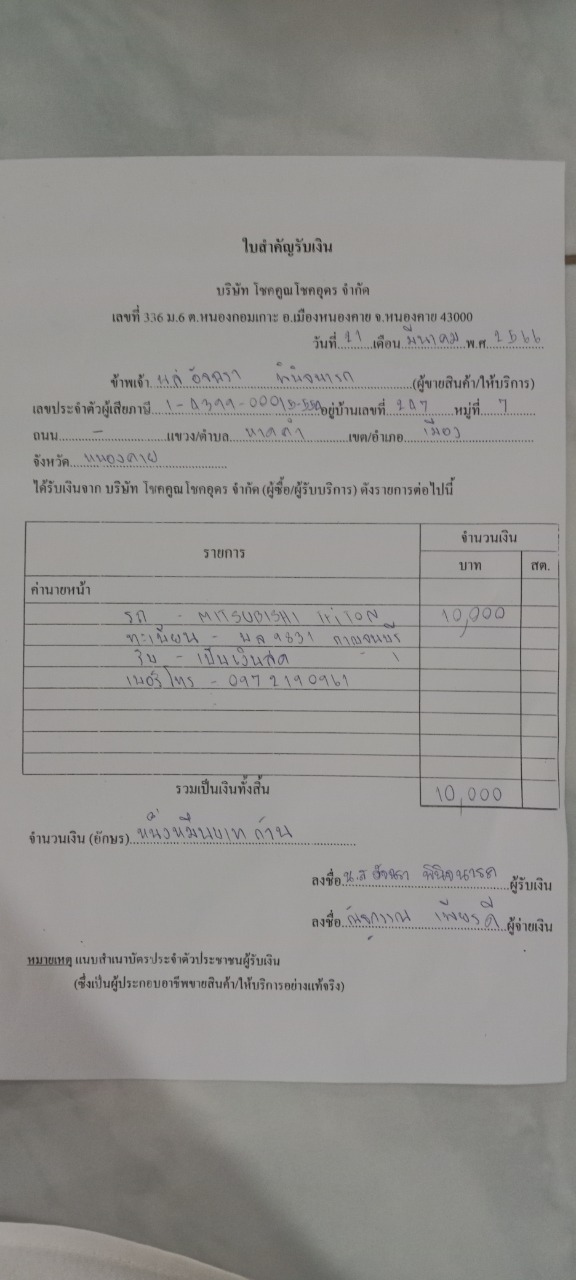 ใบสำคัญรับเงิน
บริษัท โชคคูณโชคอุดร จำกัด
เลขที่ 336 ม.6 ต.หนองกอมเกาะ อ.เมืองหนองคาย จ.หนองคาย 43000
วันที่ 21 เดือน มีนาคม พ.ศ. 2566
ข้าพเจ้า อัจฉรา พินิจนารถ (ผู้ขายสินค้า/ให้บริการ)
เลขประจำตัวผู้เสียภาษี อยู่บ้านเลขที่ 247 หมู่ที่ 7
ถนน - แขวง/ตำบล หาดคำ เขต/อำเภอ เมือง
จังหวัด หนองคาย
ได้รับเงินจาก บริษัท โชคคูณโชคอุดร จำกัด (ผู้ซื้อ/ผู้รับบริการ) ดังรายการต่อไปนี้
รายการ จำนวนเงิน
บาท สต.
ค่านายหน้า
รถ - MITSUBISHI triton 10,000
ทะเบียน - 9831 กาญจนบุรี
รับ - เป็นเงินสด
เบอร์โทร - 0972190961
รวมเป็นเงินทั้งสิ้น 10,000
จำนวนเงิน (อักษร) หนึ่งหมื่นบาทถ้วน
ลงชื่อ น.ส อัจฉรา พินิจนารถ ผู้รับเงิน
ลงชื่อ ผู้จ่ายเงิน
หมายเหตุ แนบสำเนาบัตรประจำตัวประชาชนผู้รับเงิน
(ซึ่งเป็นผู้ประกอบอาชีพขายสินค้า/ให้บริการอย่างแท้จริง)